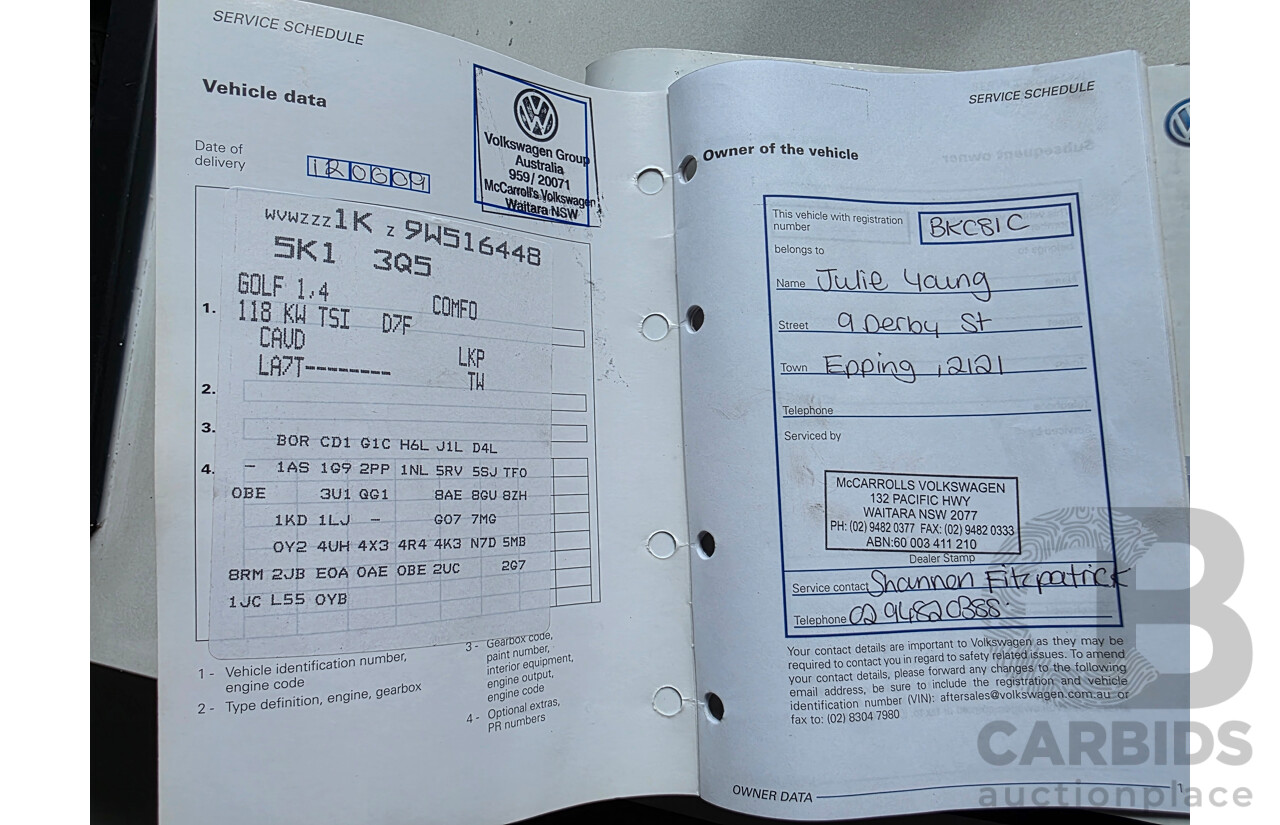 SERVICE SCHEDULE
Vehicle data
Date of
delivery
120609
Volkswagen Group
Australia
959/20071
McCarroll's Volkswagen
Waitara NSW
WVWZZZ1K Z 9W516448
5K1 3Q5
GOLF 1,4
118 KW TSI D7F COMFO
CAVD
LA7T-------- LKP
TW
1.
2.
3.
4.
BOR CD1 G1C H6L J1L D4L
- 1AS 1G9 2PP 1NL 5RV 5SJ TFO
OBE 3U1 QG1 8AE 8GU 8ZH
1KD 1LJ - G07 7MG
0Y2 4UH 4X3 4R4 4K3 N7D 5MB
8RM 2JB E0A 0AE 0BE 2UC 2G7
1JC L55 0YB
1 - Vehicle identification number,
engine code
2 - Type definition, engine, gearbox
3 - Gearbox code,
paint number,
interior equipment,
engine output,
engine code
4 - Optional extras,
PR numbers
SERVICE SCHEDULE
Owner of the vehicle
This vehicle with registration
number
BKC81C
belongs to
Name Julie Young
Street 9 Derby St
Town Epping, 2121
Telephone
Serviced by
McCARROLLS VOLKSWAGEN
132 PACIFIC HWY
WAITARA NSW 2077
PH: (02) 9482 0377 FAX: (02) 9482 0333
ABN:60 003 411 210
Dealer Stamp
Service contact Shannon Fitzpatrick
Telephone 02 94820388
Your contact details are important to Volkswagen as they may be
required to contact you in regard to safety related issues. To amend
your contact details, please forward any changes to the following
email address, be sure to include the registration and vehicle
identification number (VIN): aftersales@volkswagen.com.au or
fax to: (02) 8304 7980
OWNER DATA 1
CARBIDS
auctionplace